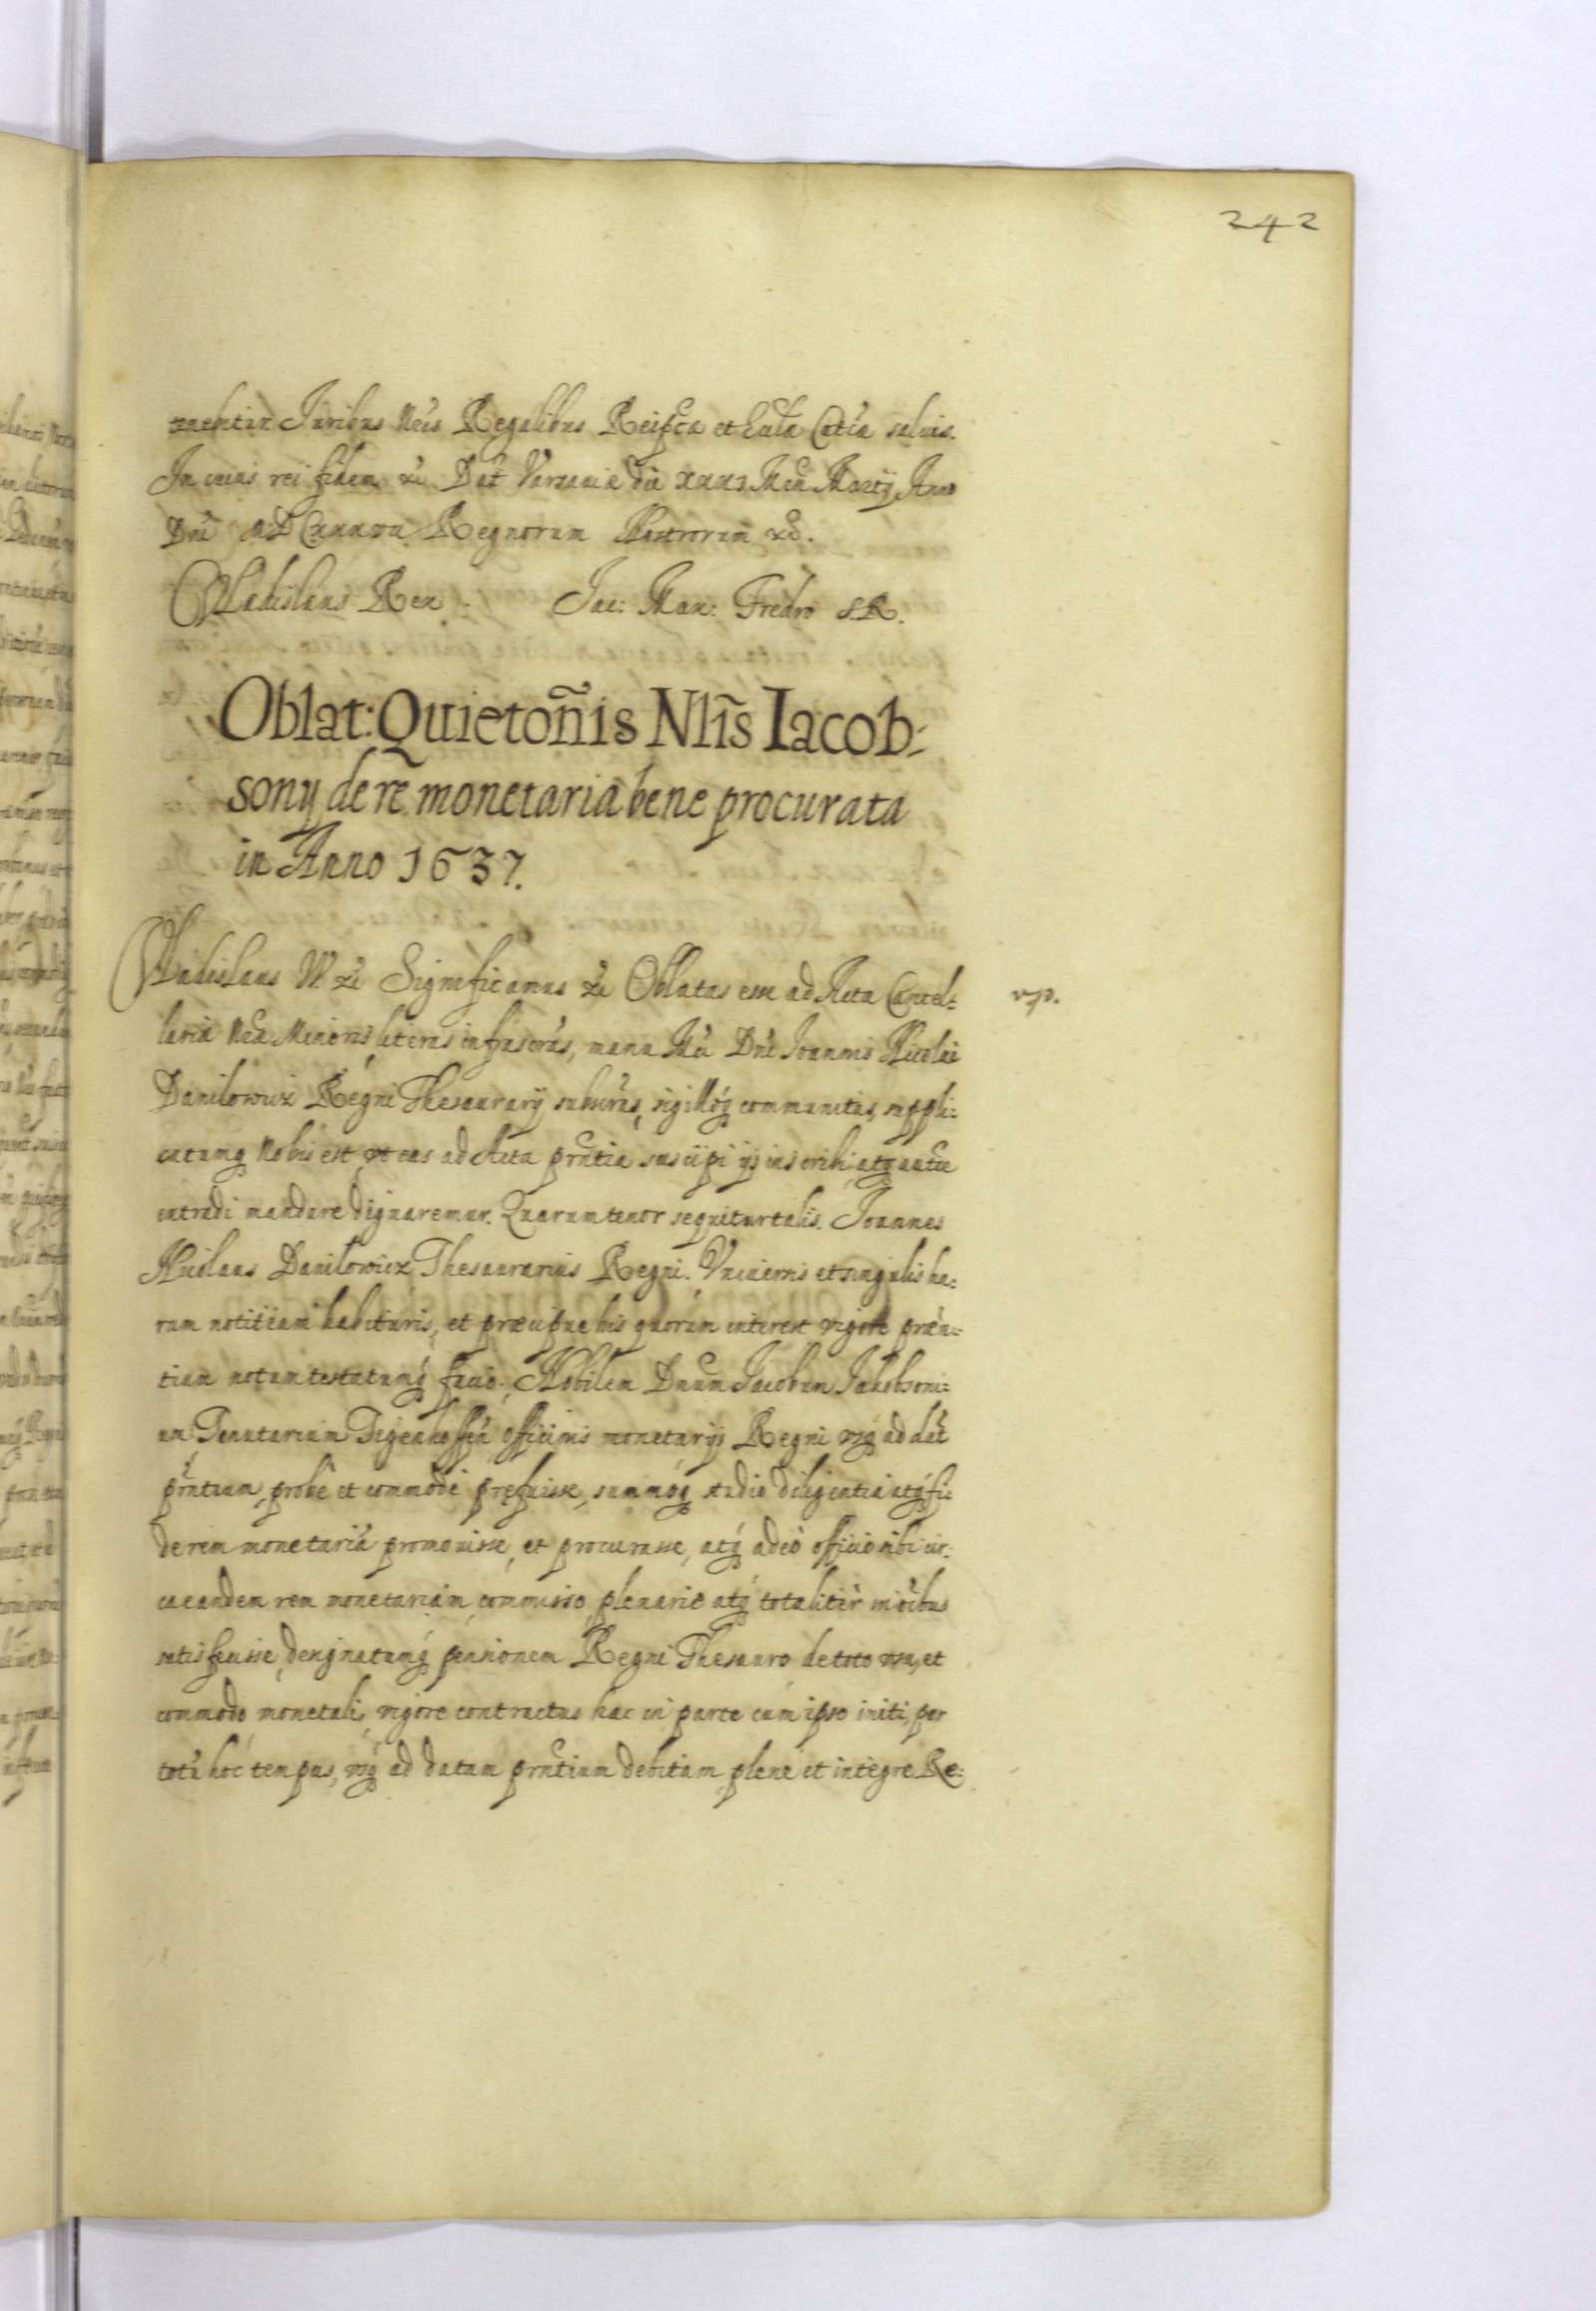 242
Juribus Nris Regalibus Reipcæ et Ecclæ Catcæ salvis.
In cuius rei fidem &c Dat Varsaviæ die XXXI Men Martij Anno
Dni MDCXXXVII Regnorum Nostrorum &c.
Vladislaus Rex. Jac: Max: Fredro SR.
Oblat: Quietoñis Nlis Iacob:
sony de re monetaria bene procurata
in Anno 1637.
Vladislaus IV. &c Significamus &c Oblatas esse ad Acta Cancel:
lariæ Nræ Minoris literas infrascras, manu Mci Dni Joannis Nicolai
Danilowicz Regni Thesaurarij subscras, sigilloq communitas, suppli:
catumq Nobis est vt eas ad Acta prntia suscipi ijs inscribi, atq autce
extradi mandare dignaremur. Quarum tenor sequitur talis. Joannes
Nicolaus Danilowicz Thesaurarius Regni. Vniversis et singulis ha:
rum notitiam habituris, et præcipue his quorum interest vigore præn:
tium notum testatumq facio; Nobilem Dnum Jacobum Jakobsoni:
um Tenutarium Tigenhoffen officinis monetarijs Regni vsq ad dat
prntium, probe et commode prefuisse, summoq studio diligentia atq fi
de rem monetariã promovisse, et procurasse, atq adeo officio sibi cir:
ca eandem rem monetariam commisso, plenarie atq totaliter in oibus
satisfecisse, designatamq pensionem Regni Thesauro de toto usu, et
commodo monetali, vigore contractus hac in parte cum ipso initi, per
totũ hoc tempus, vsq ad datam prntium debitam plene et integre Re: